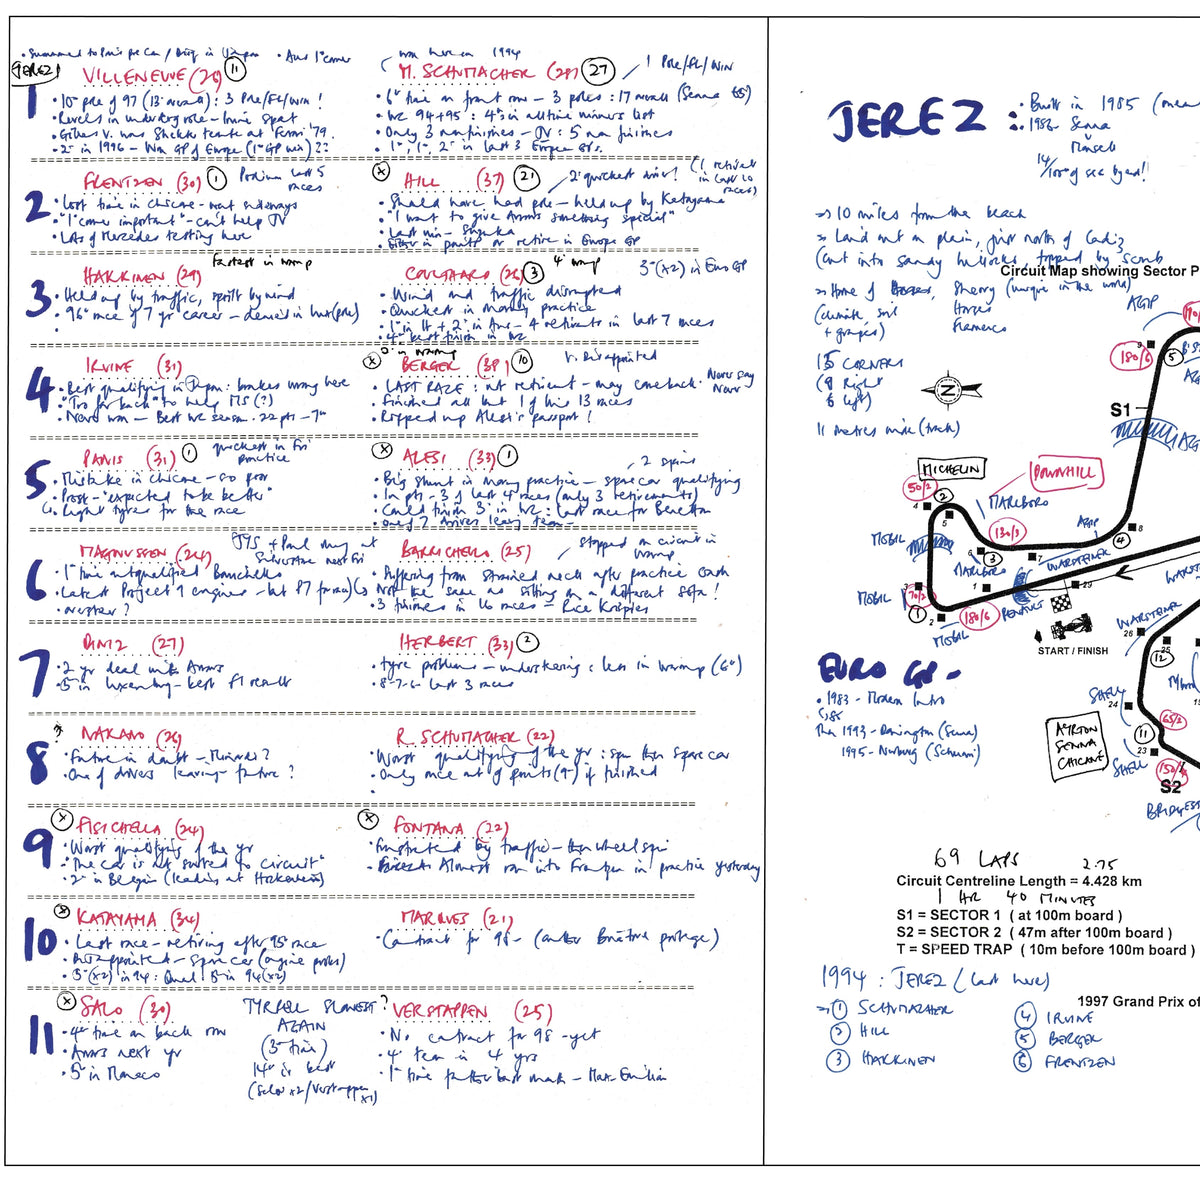 JEREZ!
VILLENEUVE (26) 11
10th pole of 97 (13th overall): 3 Pole/FL/WIN!
Gilles V. was Sheckter's teammate at Ferrari '79.
2nd in 1996 - Won GP of Europe (1st GP win) ??
won here in 1994
M. SCHUMACHER (28) 27
1 Pole/FL/WIN
6th time on front row - 3 poles: 17 overall (Senna 65)
WC 94+95: 4th in all time winners list
Only 3 non finishes - JV: 5 non finishes
1st, 1st, 2nd in last 3 Europe GPs.
1
2
FRENTZEN (30) 1
Podium last 5 races
Lost time in chicane - went sideways
"1st corner important" - can't help JV
Lots of Mercedes testing here
X
HILL (37) 21
2nd quickest driver!
(1 retiral in last 10 races)
Should have had pole - held up by Katayama
"I want to give Arrows something special"
Last win - Suzuka
Either in points or retire in Europe GP
3
HAKKINEN (29)
fastest in warm up
Held up by traffic, spoilt by wind
96th race of 7 yr career - denied in Lux (pole)
COULTHARD (26) 3
4th warm up
3rd (x2) in Euro GP
Wind and traffic disrupted
Quickest in morning practice
1st in It + 2nd in Aus - 4 retirements in last 7 races
4th best finish in WC
4
IRVINE (31)
Best qualifying in Japan: brakes wrong here
"Too far back" to help MS (?)
Never won - Best WC season: 22 pts - 7th
X
in warm up
BERGER (38) 10
V. Disappointed
Never say Never
LAST RACE: not retirement - may come back
Finished all but 1 of his 13 races
Ripped up Alesi's passport!
5
PANIS (31) 1
quickest in Fri practice
Mistake in chicane - so poor
Prost - "expected to be better"
Right tyres for the race
X
ALESI (33) 1
2 spins
Big shunt in morning practice - spare car qualifying
In pts - 3 of last 4 races (only 3 retirements)
Could finish 3rd in WC: last race for Benetton
One of 7 drivers leaving team
6
MAGNUSSEN (24)
JYS + Paul
at Silverstone next Fri
1st time outqualified Barrichello
BARRICHELLO (25)
stopped on circuit in warm up
Suffering from strained neck after practice crash
Not the same as sitting on a different sofa!
3 finishes in 16 races - Rice Krispies
7
DINIZ (27)
2 yr deal with Arrows
5th in Luxembourg - best F1 result
HERBERT (33) 2
tyre problems - understeering: less in warm up (6th)
8-7-6 last 3 races
8
NAKANO (26)
Future in doubt - Minardi?
One of drivers leaving future?
R. SCHUMACHER (22)
Worst qualifying of the yr: spin then spare car
Only once out of points (9th) if finished
9
X
FISICHELLA (24)
Worst qualifying of the yr
"The car is not suited to circuit"
2nd in Belgium (leading at Hockenheim)
X
FONTANA (22)
Frustrated by traffic - then wheel spin
Almost ran into Frentzen in practice yesterday
10
X
KATAYAMA (34)
Last race - retiring after 95th race
Disappointed - Spare car (engine probs)
5th (x2) in 94: Qual: 5th in 94 (x2)
MARQUES (21)
Contract for 98 - (another Briatore protege)
11
X
SALO (30)
4th time on back row
Arrows next yr
5th in Monaco
TYRRELL SLOWEST? AGAIN
(3rd time)
14th is best
(Salo x2/Verstappen x1)
VERSTAPPEN (25)
No contract for 98 - yet
4th team in 4 yrs
1st time father last month - Max-Emilian
JEREZ:
Built in 1985
1986 - Senna
v
Mansell
14/1000th of sec beyond!
10 miles from the beach
Laid out on plain, just north of Cadiz
(cut into sandy hillocks, topped by scrub
Home of Sherry (unique in the world)
(climate soil + grapes)
Horses
Flamenco
15 CORNERS
(9 Right
6 left)
11 metres wide (track)
Circuit Map showing Sector P
AGIP
180/6
9
5
N
S1
MICHELIN
DOWNHILL
50/2
2
4
5
MARLBORO
130/3
AGIP
8
4
MOBIL
6
3
MARLBORO
7
WARSTEINER
MOBIL
3
70/2
1
2
1
180/6
MOBIL
RENAULT
29
START / FINISH
WARSTEINER
26
25
12
SHELL
24
65/2
11
23
SHELL
AYRTON
SENNA
CHICANE
S2
BRIDGEST
EURO GP -
1983 - Modern Intro
& 85
Then 1993 - Donington (Senna)
1995 - Nurburg (Schumi)
69 LAPS
2.75
Circuit Centreline Length = 4.428 km
1 HR 40 MINUTES
S1 = SECTOR 1 ( at 100m board )
S2 = SECTOR 2 ( 47m after 100m board )
T = SPEED TRAP ( 10m before 100m board )
1994: JEREZ (last here)
1 SCHUMACHER
2 HILL
3 HAKKINEN
4 IRVINE
5 BERGER
6 FRENTZEN
1997 Grand Prix of